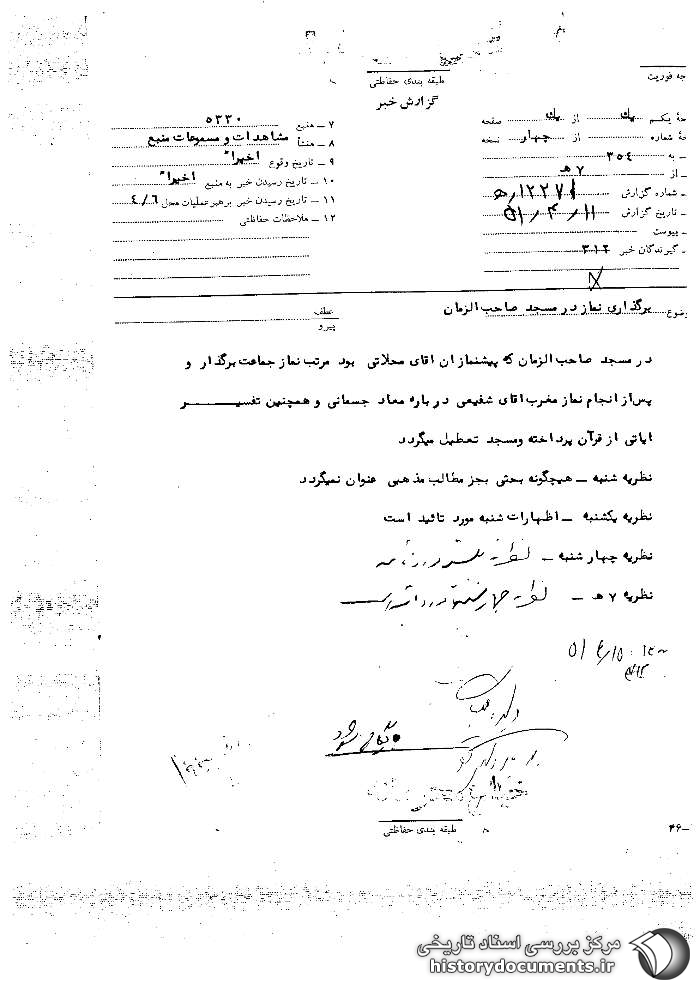 طبقه بندی حفاظتی
گزارش خبر
جه فوریت
حهٔ یکم یک از یک صفحه
حهٔ شماره از چهار نسخه
ـ به ۳۵۴
ـ از ۷ هـ
ـ شماره گزارش ۱۲۲۷۱ / هـ
ـ تاریخ گزارش ۵۱٫۴٫۱۱
ـ پیوست
ـ گیرندگان خبر ۳۱۲
۷ ـ منبع ۵۳۳۰
۸ ـ منشأ مشاهدات و مسموعات منبع
۹ ـ تاریخ وقوع اخیراً
۱۰ ـ تاریخ رسیدن خبر به منبع اخیراً
۱۱ ـ تاریخ رسیدن خبر برهبر عملیات محل ۴/۶
۱۲ ـ ملاحظات حفاظتی
وضوع برگذاری نماز در مسجد صاحب الزمان
عطف
پیرو
در مسجد صاحب الزمان که پیشنماز ان اقای محلاتی بود مرتب نماز جماعت برگذار و
پس از انجام نماز مغرب اقای شفیعی درباره معاد جسمانی و همچنین تفسیر
ایاتی از قرآن پرداخته و مسجد تعطیل میگردد
نظریه شنبه ـ هیچگونه بحثی بجز مطالب مذهبی عنوان نمیگردد
نظریه یکشنبه ـ اظهارات شنبه مورد تائید است
نظریه چهارشنبه ـ
نظریه ۷ هـ ـ
۵۱/۴/۱۵
۳۱۲
بایگانی شود
طبقه بندی حفاظتی
۳۶ـ
مرکز بررسی اسناد تاریخی
historydocuments.ir